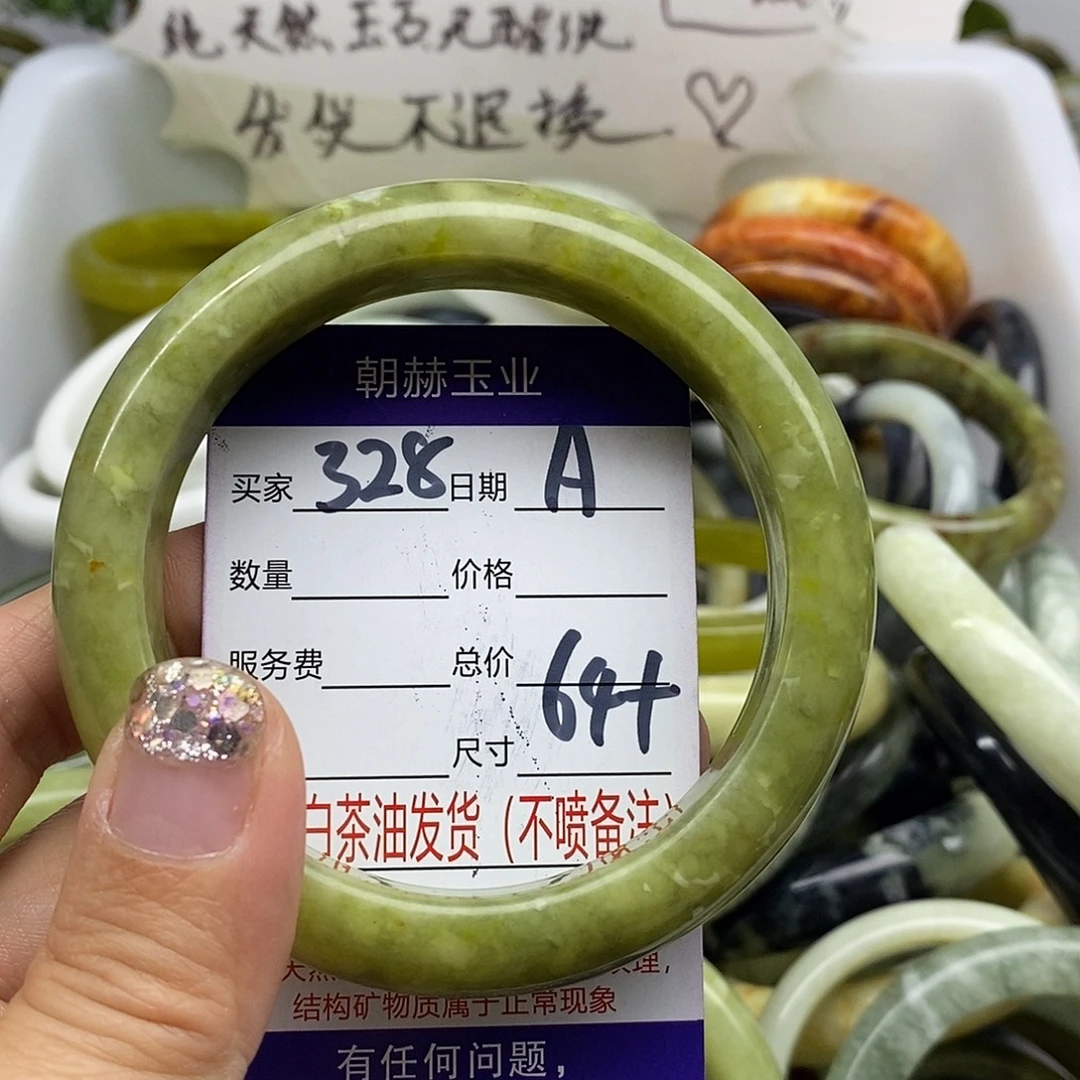 纯天然玉石无酸洗
售出不退换
朝赫玉业
买家 328 日期 A
数量 价格
服务费 总价
64+
尺寸
白茶油发货（不喷备注）
天然 纹理，
结构矿物质属于正常现象
有任何问题，